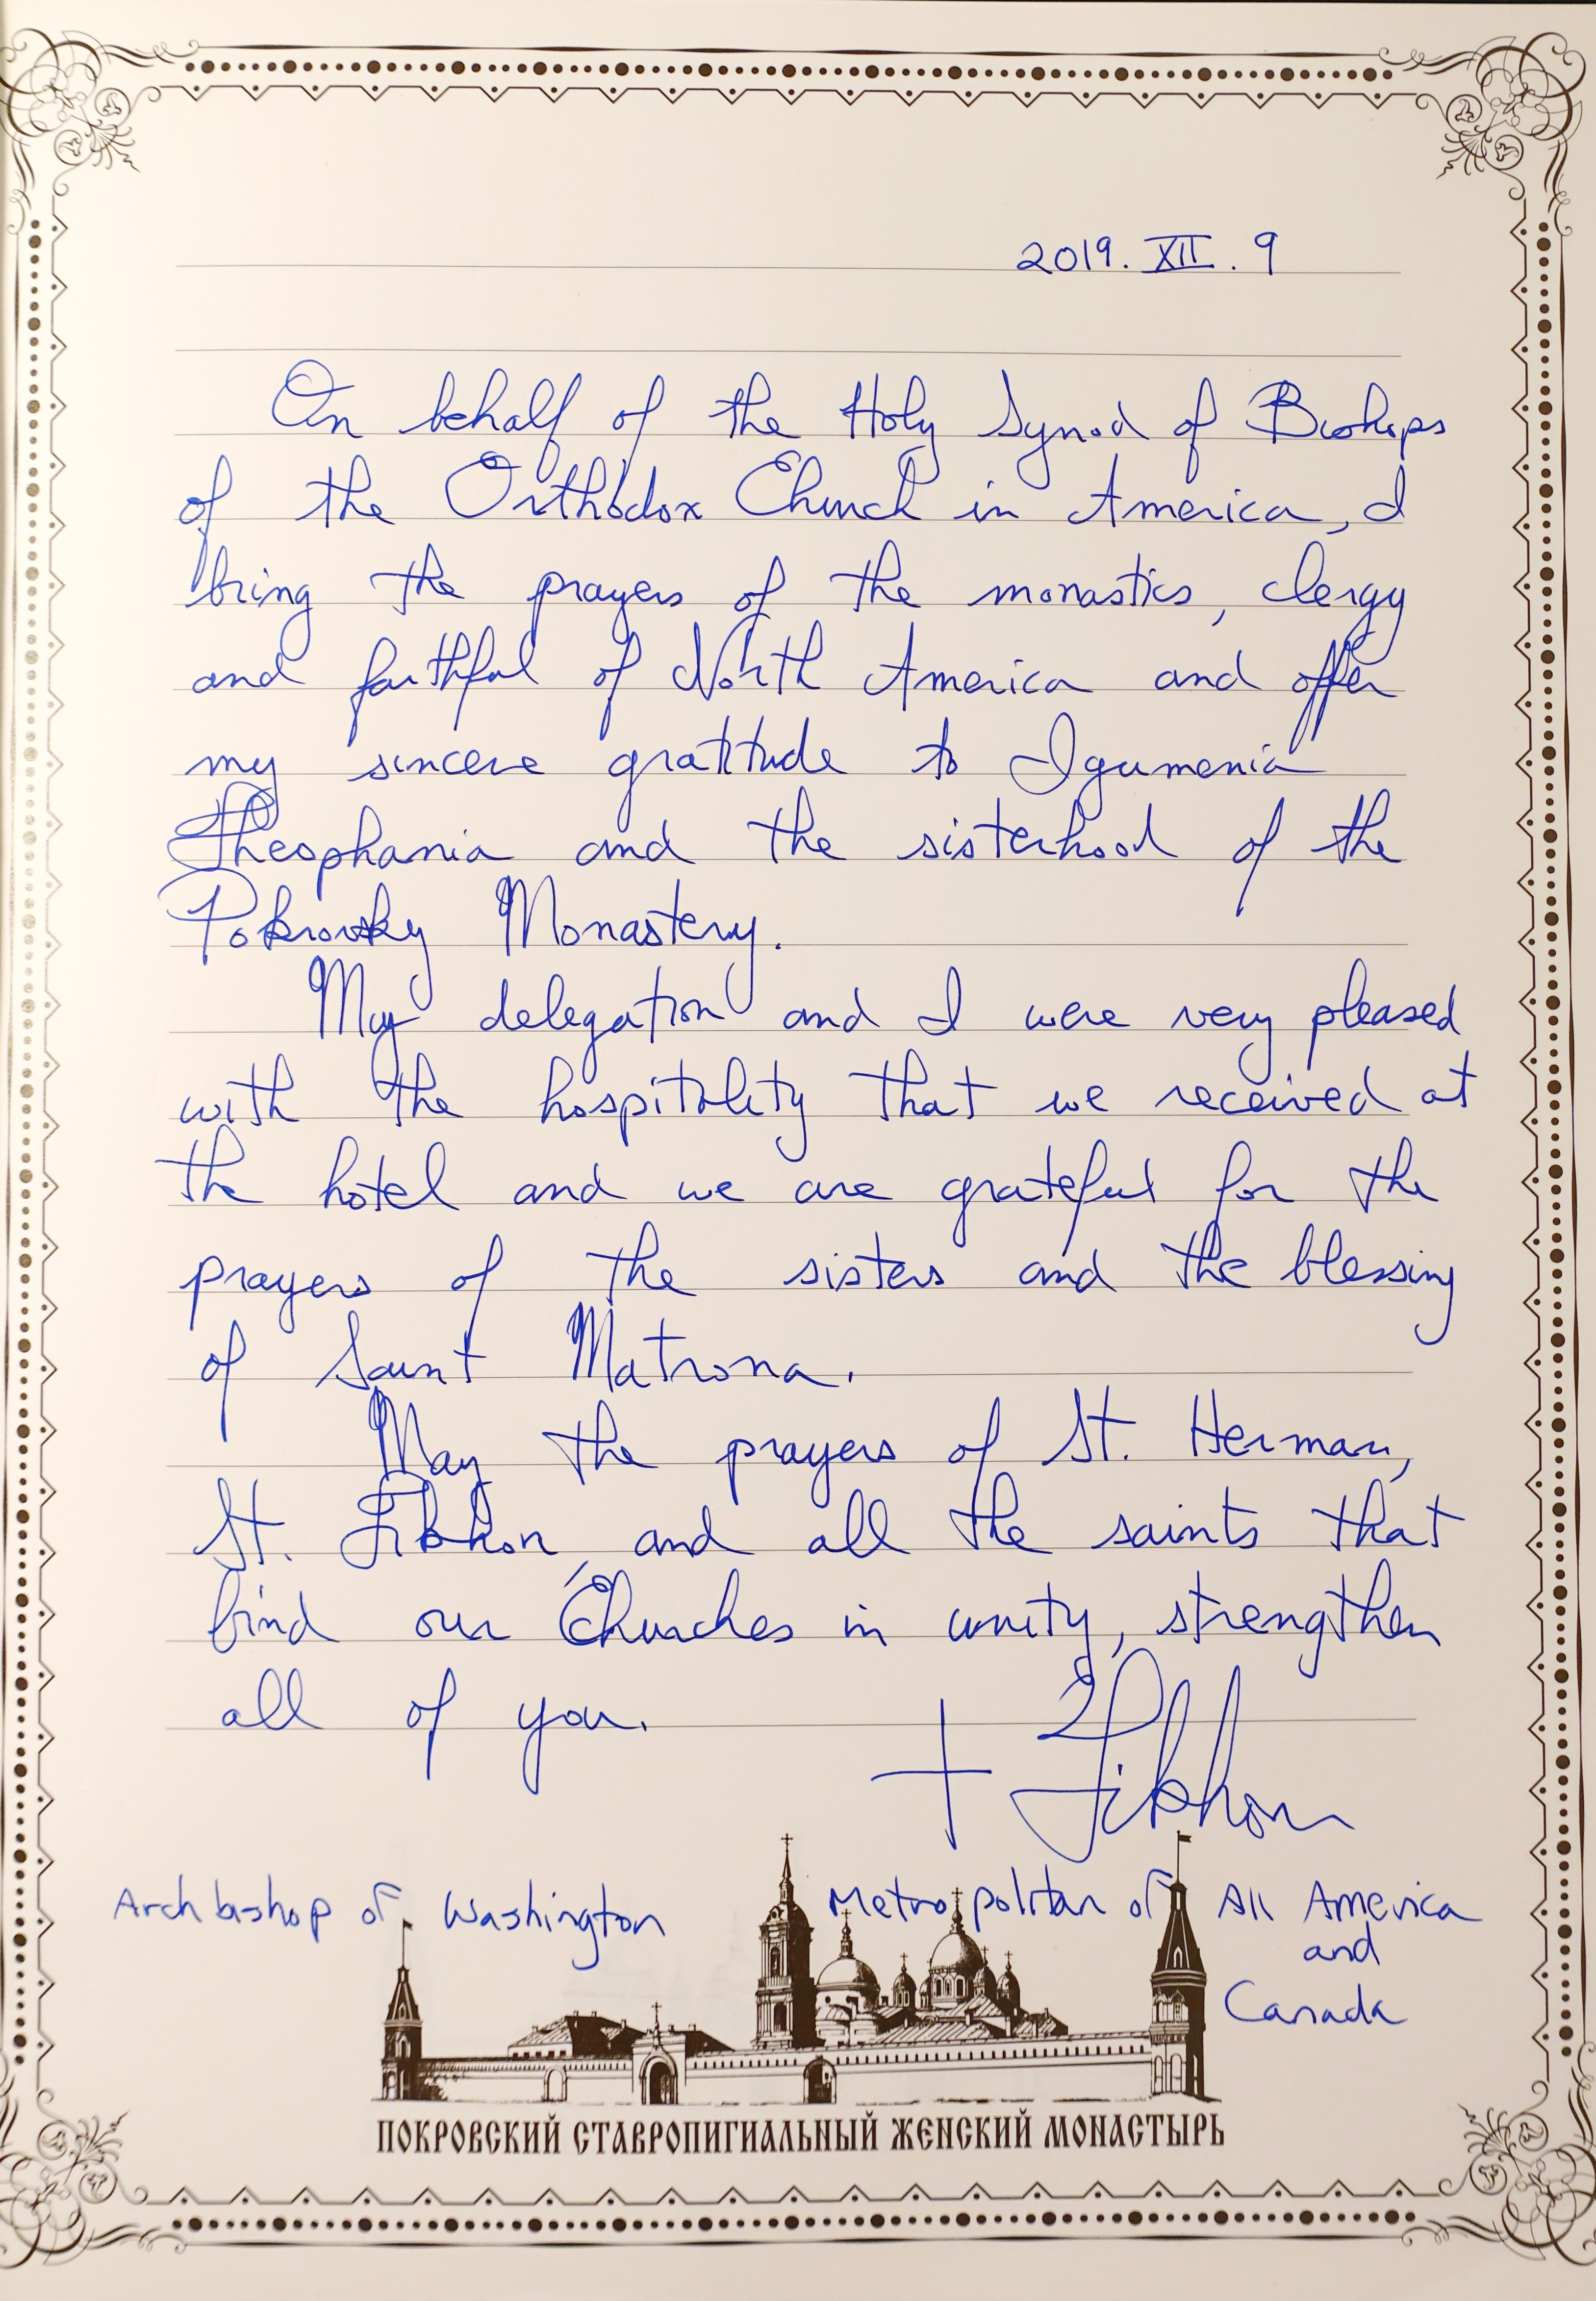 2019. XII. 9
On behalf of the Holy Synod of Bishops
of the Orthodox Church in America, I
bring the prayers of the monastics, clergy
and faithful of North America and offer
my sincere gratitude to Igumenia
Theophania and the sisterhood of the
Pokrovsky Monastery.
My delegation and I were very pleased
with the hospitality that we received at
the hotel and we are grateful for the
prayers of the sisters and the blessing
of Saint Matrona.
May the prayers of St. Herman,
St. Tikhon, and all the saints that
bind our Churches in unity, strengthen
all of you.
+ Tikhon
Archbishop of Washington Metropolitan of All America
and
Canada
ПОКРОВСКИЙ СТАВРОПИГИАЛЬНЫЙ ЖЕНСКИЙ МОНАСТЫРЬ